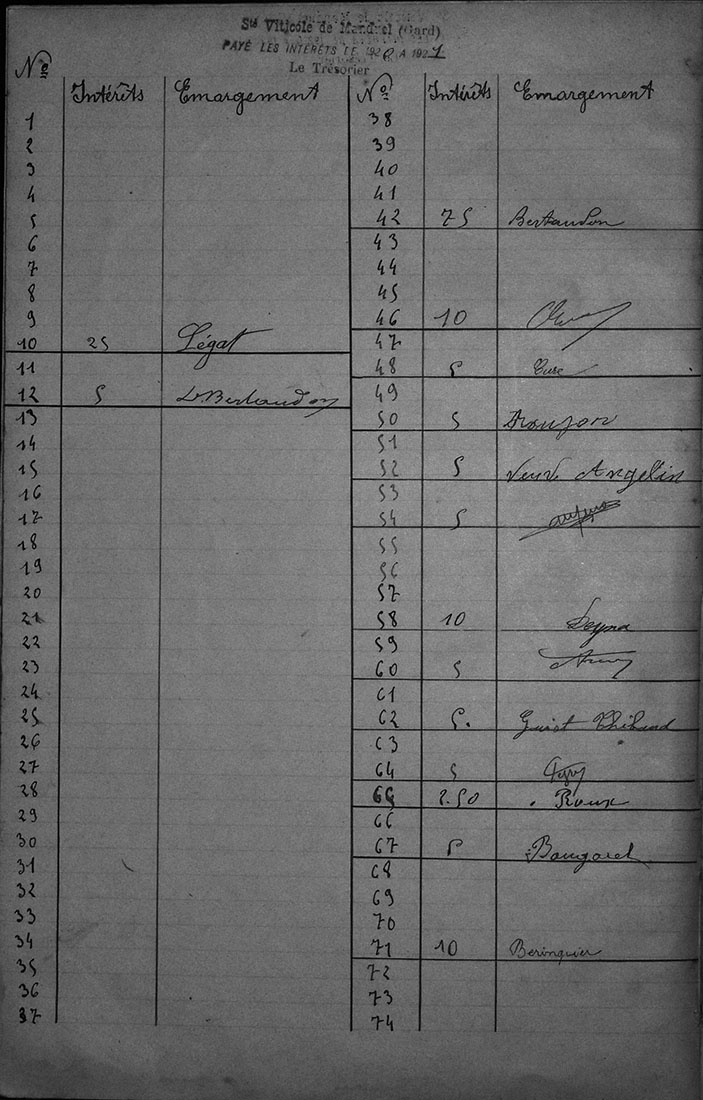 Sté Viticole de Manduel (Gard)
PAYÉ LES INTÉRÊTS DE 1920 A 1921
Le Trésorier
No Intérêts Emargement
1
2
3
4
5
6
7
8
9
10 25 Légat
11
12 5 L. Bertaudon
13
14
15
16
17
18
19
20
21
22
23
24
25
26
27
28
29
30
31
32
33
34
35
36
37
No Intérêts Emargement
38
39
40
41
42 75 Bertaudon
43
44
45
46 10
47
48 5
49
50 5
51
52 5 Veuve Angelin
53
54 5
55
56
57
58 10
59
60 5
61
62 5. Guiot Thibaud
63
64 5
65 2.50 Roux
66
67 5
68
69
70
71 10 Beringuier
72
73
74